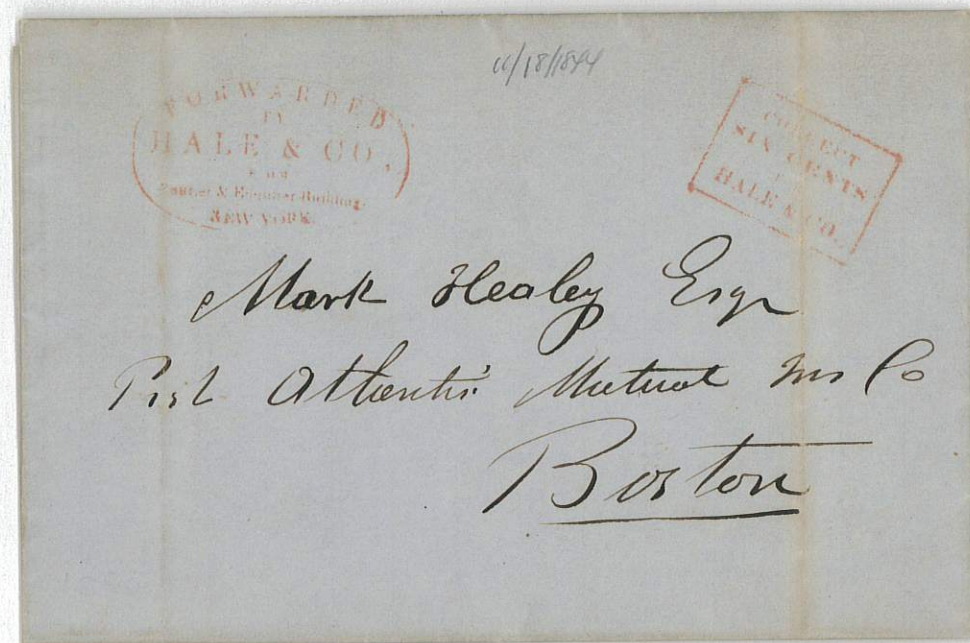 10/18/1844
FORWARDED
BY
HALE & CO,
FROM
Courier & Enquirer Building,
NEW YORK.
COLLECT
SIX CENTS
HALE & CO.
Mark Healey Esqr
Prst Atlantic Mutual Ins Co
Boston